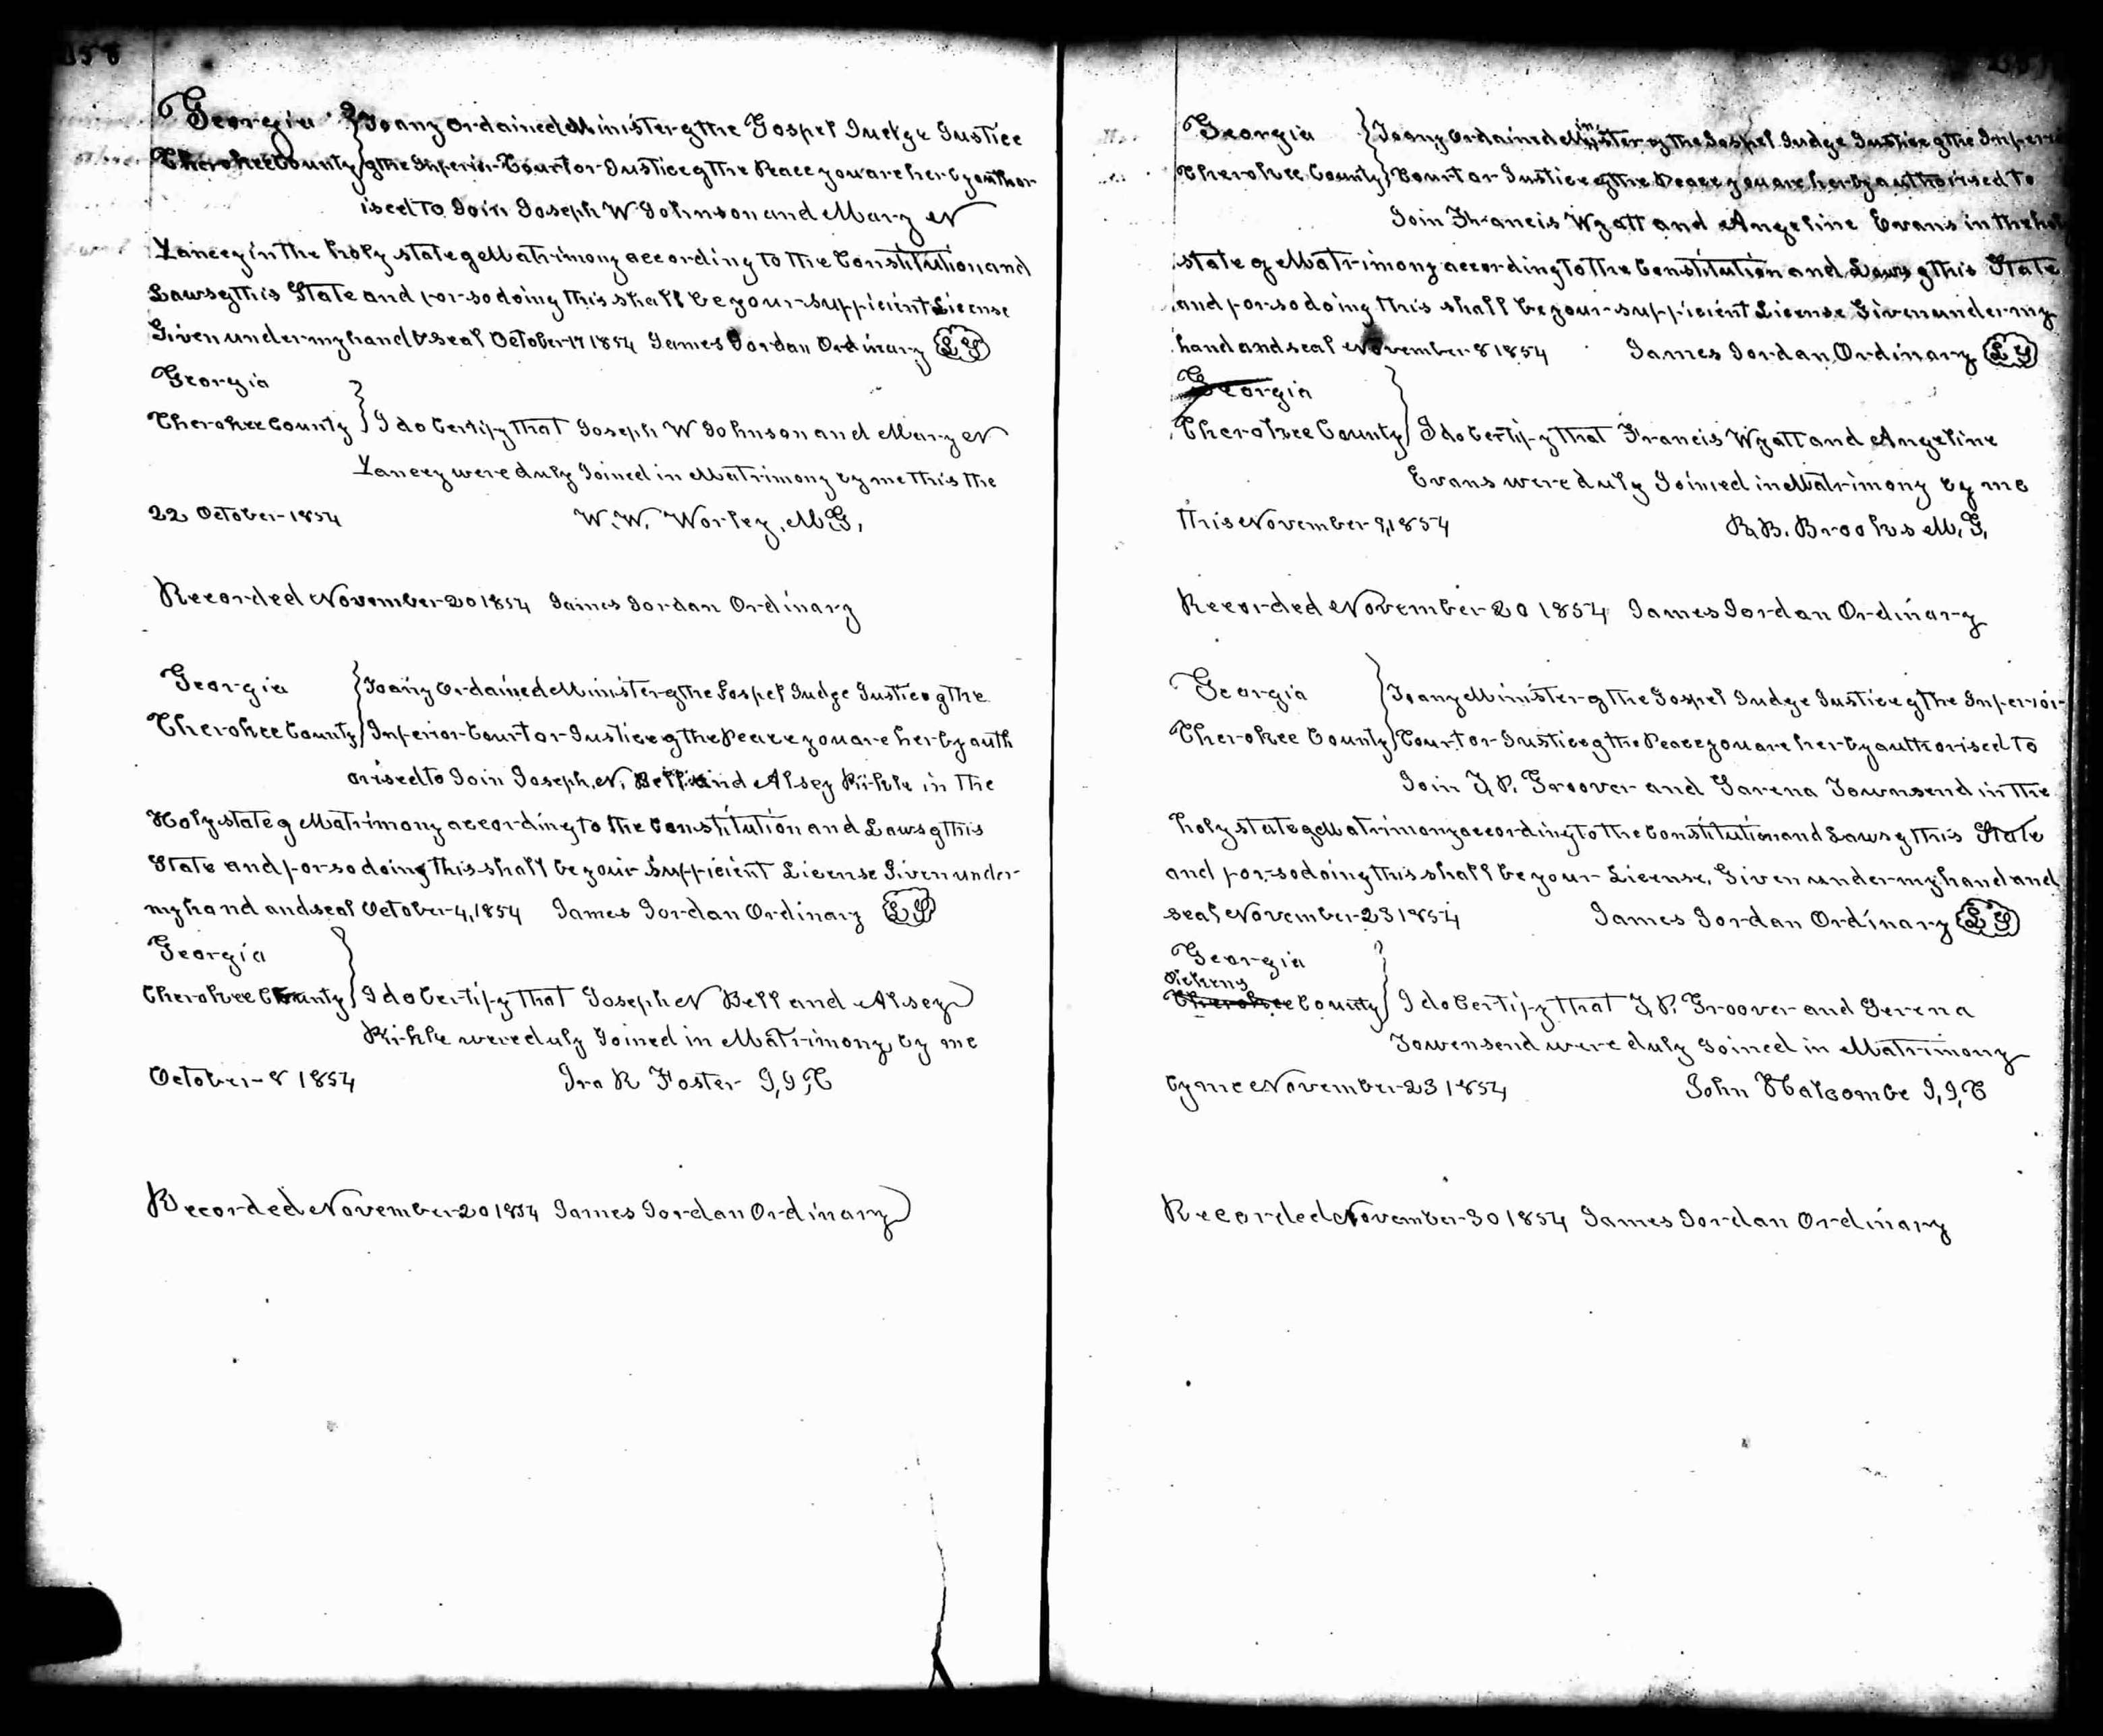 158
Georgia } To any Ordained Minister of the Gospel Judge Justice
Cherokee County } of the Inferior Court or Justice of the Peace you are herby author
ised to Join Joseph W Johnson and Mary N
Yancey in the holy state of Matrimony according to the Constitution and
Laws of this State and for so doing this shall be your sufficient License
Given under my hand & seal October 17 1854 James Jordan Ordinary LS
Georgia
Cherokee County } I do Certify that Joseph W Johnson and Mary N
Yancey were duly Joined in Matrimony by me this the
22 October 1854 W. W. Worley, M. G,
Recorded November 20 1854 James Jordan Ordinary
Georgia } To any Ordained Minister of the Gospel Judge Justice of the
Cherokee County } Inferior Court or Justice of the Peace you are herby auth
orised to Join Joseph, N, Bell and Alsey Kikle in the
Holy state of Matrimony according to the Constitution and Laws of this
State and for so doing this shall be your Sufficient License Given under
my hand and seal October 4, 1854 James Jordan Ordinary LS
Georgia
Cherokee County } I do Certify that Joseph N Bell and Alsey
Kikle were duly Joined in Matrimony by me
October 8 1854 Ira R Foster J, I, C
Recorded November 20 1854 James Jordan Ordinary
Georgia } To any Ordained Minister of the Gospel Judge Justice of the Inferior
Cherokee County } Court or Justice of the Peace you are herby authorised to
Join Francis Wyatt and Angeline Evans in the holy
state of Matrimony according to the Constitution and Laws of this State
and for so doing this shall be your sufficient License Given under my
hand and seal November 8 1854 James Jordan Ordinary LS
Georgia
Cherokee County } I do Certify that Francis Wyatt and Angeline
Evans were duly Joinied in Matrimony by me
this November 9, 1854 R. B. Brooks M. G,
Recorded November 20 1854 James Jordan Ordinary
Georgia } To any Minister of the Gospel Judge Justice of the Inferior
Cherokee County } Court or Justice of the Peace you are herby authorised to
Join J, P. Groover and Sarena Townsend in the
holy state of Matrimony according to the Constitution and Laws of this State
and for so doing this shall be your License, Given under my hand and
seal November 23 1854 James Jordan Ordinary LS
Georgia
Pickens
Cherokee County } I do Certify that J, P. Groover and Serena
Towensend were duly Joined in Matrimony
by me November 23 1854 John Halcombe J, I, C
Recorded November 30 1854 James Jordan Ordinary